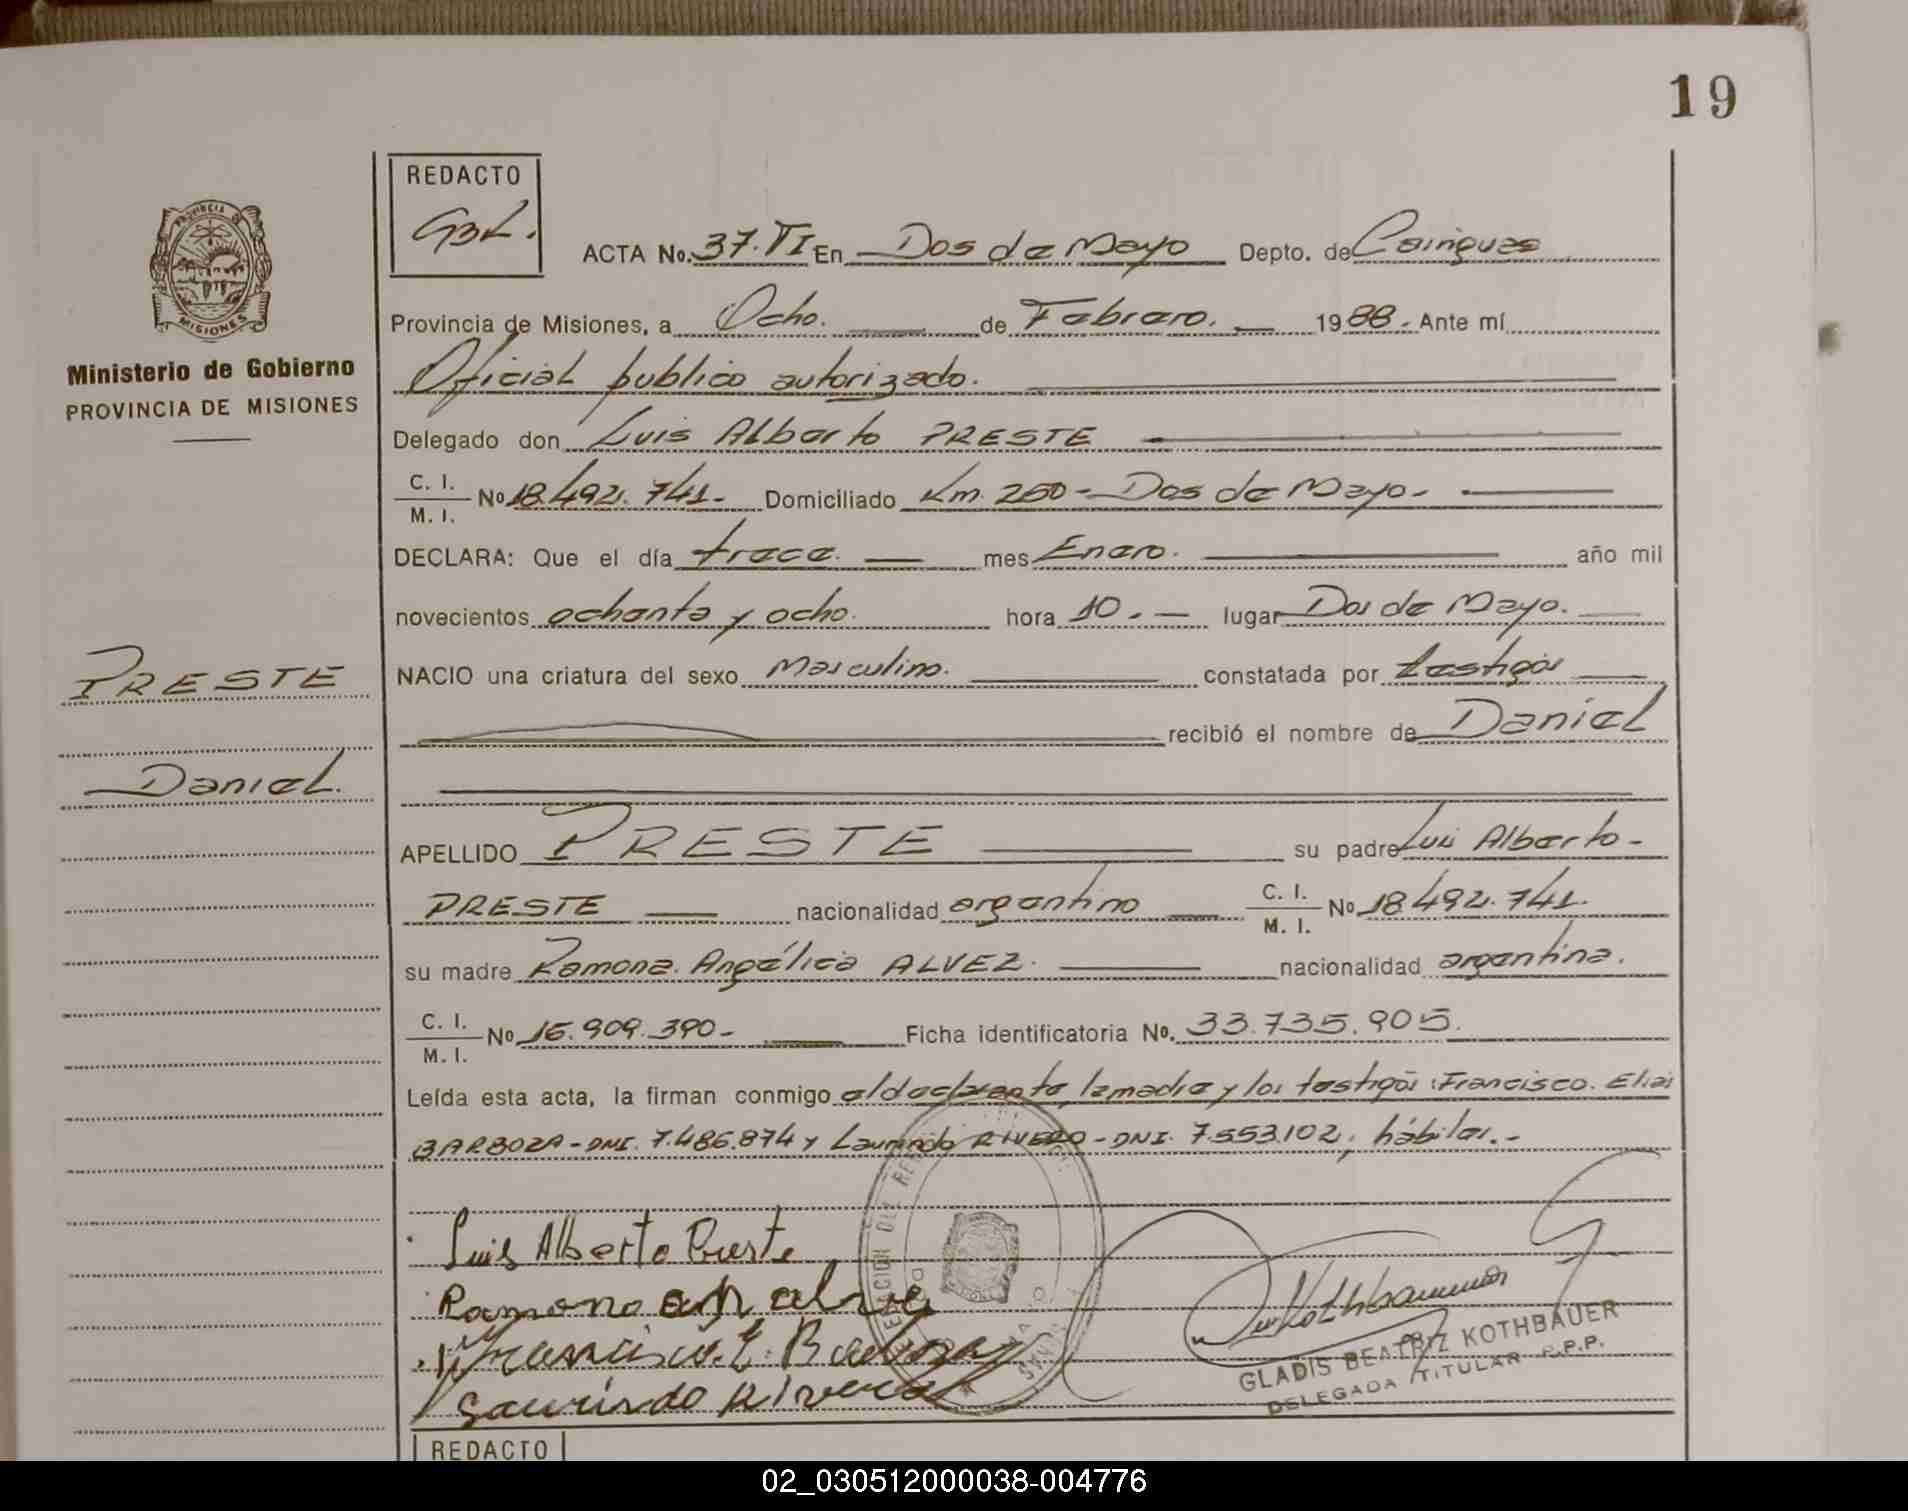 19
REDACTO
GBK.
ACTA No. 37.TI En Dos de Mayo Depto. de Cainguas
PROVINCIA
MISIONES
Provincia de Misiones, a Ocho. de Febrero. 1988. Ante mí
Ministerio de Gobierno
PROVINCIA DE MISIONES
Oficial publico autorizado.
Delegado don Luis Alberto PRESTE
C. I.
M. I. No 18.492.741- Domiciliado Km. 250 - Dos de Mayo-
DECLARA: Que el día trece. mes Enero. año mil
novecientos ochenta y ocho. hora 10.- lugar Dos de Mayo.
PRESTE
NACIO una criatura del sexo Masculino. constatada por testigos
recibió el nombre de Daniel
Daniel.
APELLIDO PRESTE su padre Luis Alberto-
PRESTE nacionalidad argentino C. I.
M. I. No 18.492.741.
su madre Ramona Angélica ALVEZ. nacionalidad argentina.
C. I.
M. I. No 16.909.390- Ficha identificatoria No. 33.735.905.
Leída esta acta, la firman conmigo el declarante, la madre y los testigos: Francisco Elias
BARBOZA - DNI. 7.486.874 y Laurindo RIVERO - DNI. 7.553.102, hábiles.-
Luis Alberto Preste
Ramona
Francisco. E. Barboza
Laurindo Rivero
GLADIS BEATRIZ KOTHBAUER
DELEGADA TITULAR R.P.P.
REDACTO
02_030512000038-004776